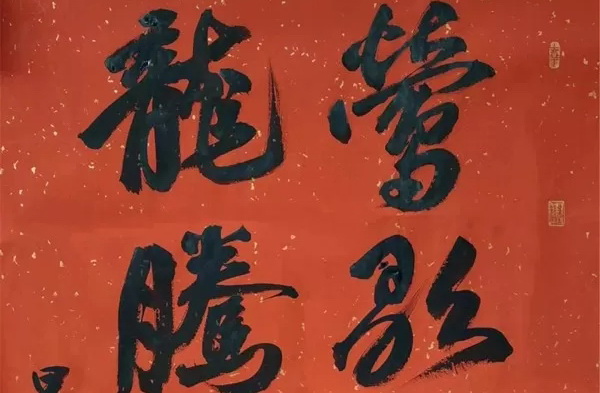 鶯歌
龍騰